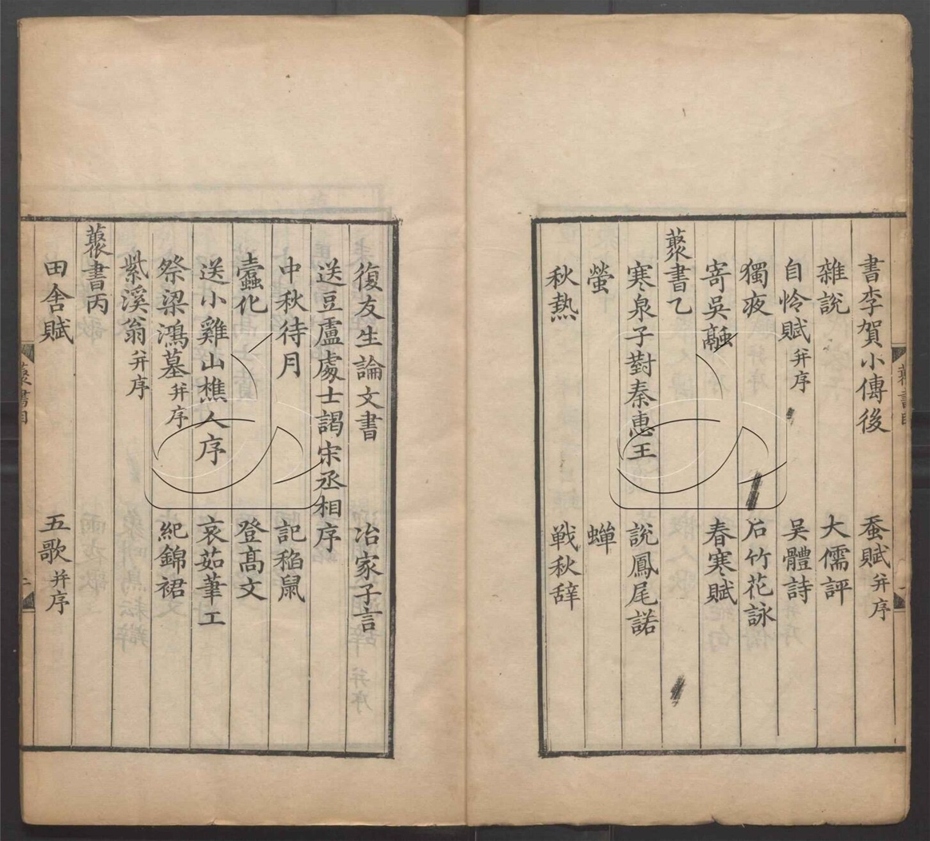 書李賀小傳後 蚕賦并序
雜說 大儒評
自怜賦并序 吳體詩
獨夜 石竹花詠
寄吳融 春寒賦
藂書乙
寒泉子對秦惠王 說鳳尾諾
螢 蟬
秋熱 戰秋辞
復友生論文書 冶家子言
送豆盧處士謁宋丞相序
中秋待月 記稻鼠
蠹化 登髙文
送小雞山樵人序 哀茹筆工
祭梁鴻墓并序 紀錦裙
紫溪翁并序
藂書丙
田舍賦 五歌并序